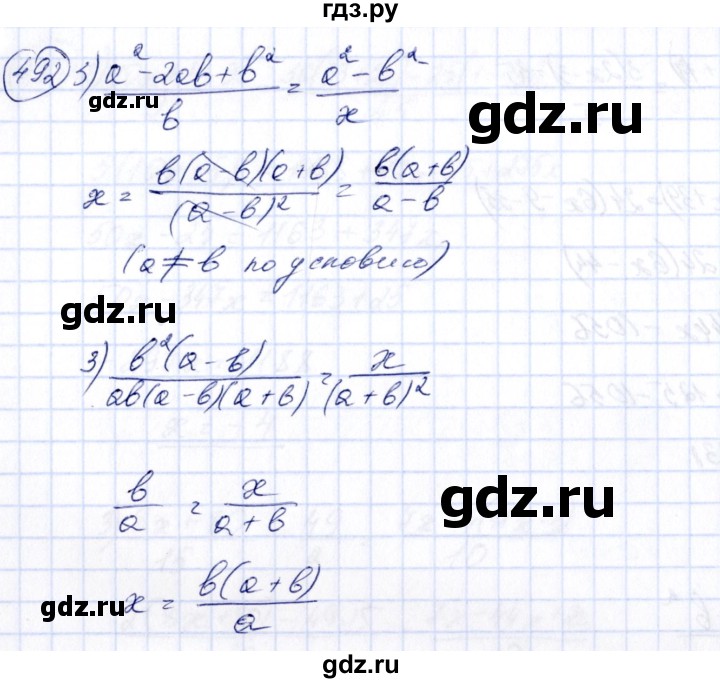 гдз.ру
492 3) (a² - 2ab + b²)/b = (a² - b²)/x
gdz.ru
gdz.ru
x = b(a - b)(a + b)/(a - b)² = b(a + b)/(a - b)
gdz.ru
(a ≠ b по условию)
gdz.ru
3) b²(a - b)/(ab(a - b)(a + b)) = x/(a + b)²
b/a = x/(a + b)
gdz.ru
x = b(a + b)/a
gdz.ru
gdz.ru